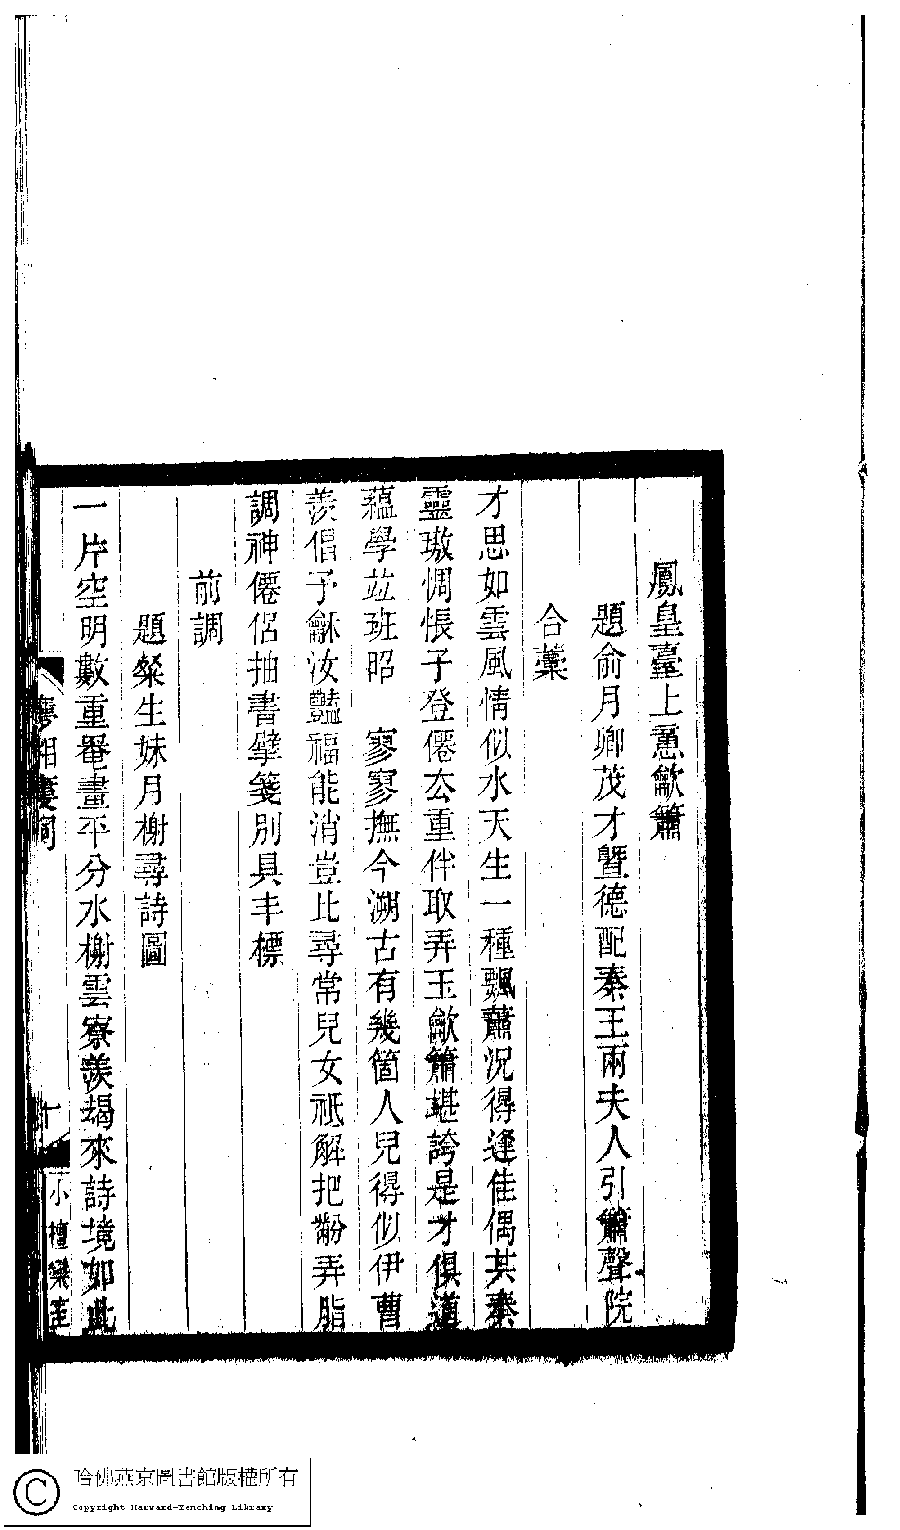 鳳皇臺上憶歙簫
題俞月卿茂才曁德配秦王兩夫人引簫聲院
合藁
才思如雲風情似水天生一種飄蕭況得逢佳偶其秦
靈璈惆悵子登僊去重伴取弄玉歙簫堪誇是才俱道
蘊學竝班昭　寥寥撫今溯古有幾箇人兒得似伊曹
羨倡予龢汝豔福能消豈比尋常兒女祗解把黺弄脂
調神僊侶抽書擘箋別具丰標
前調
題粲生妹月榭尋詩圖
一片空明數重罨畫平分水榭雲寮羨朅來詩境如此
夢湘廔詞
十
小檀欒室
哈佛燕京圖書館版權所有
Copyright Harvard-Yenching Library